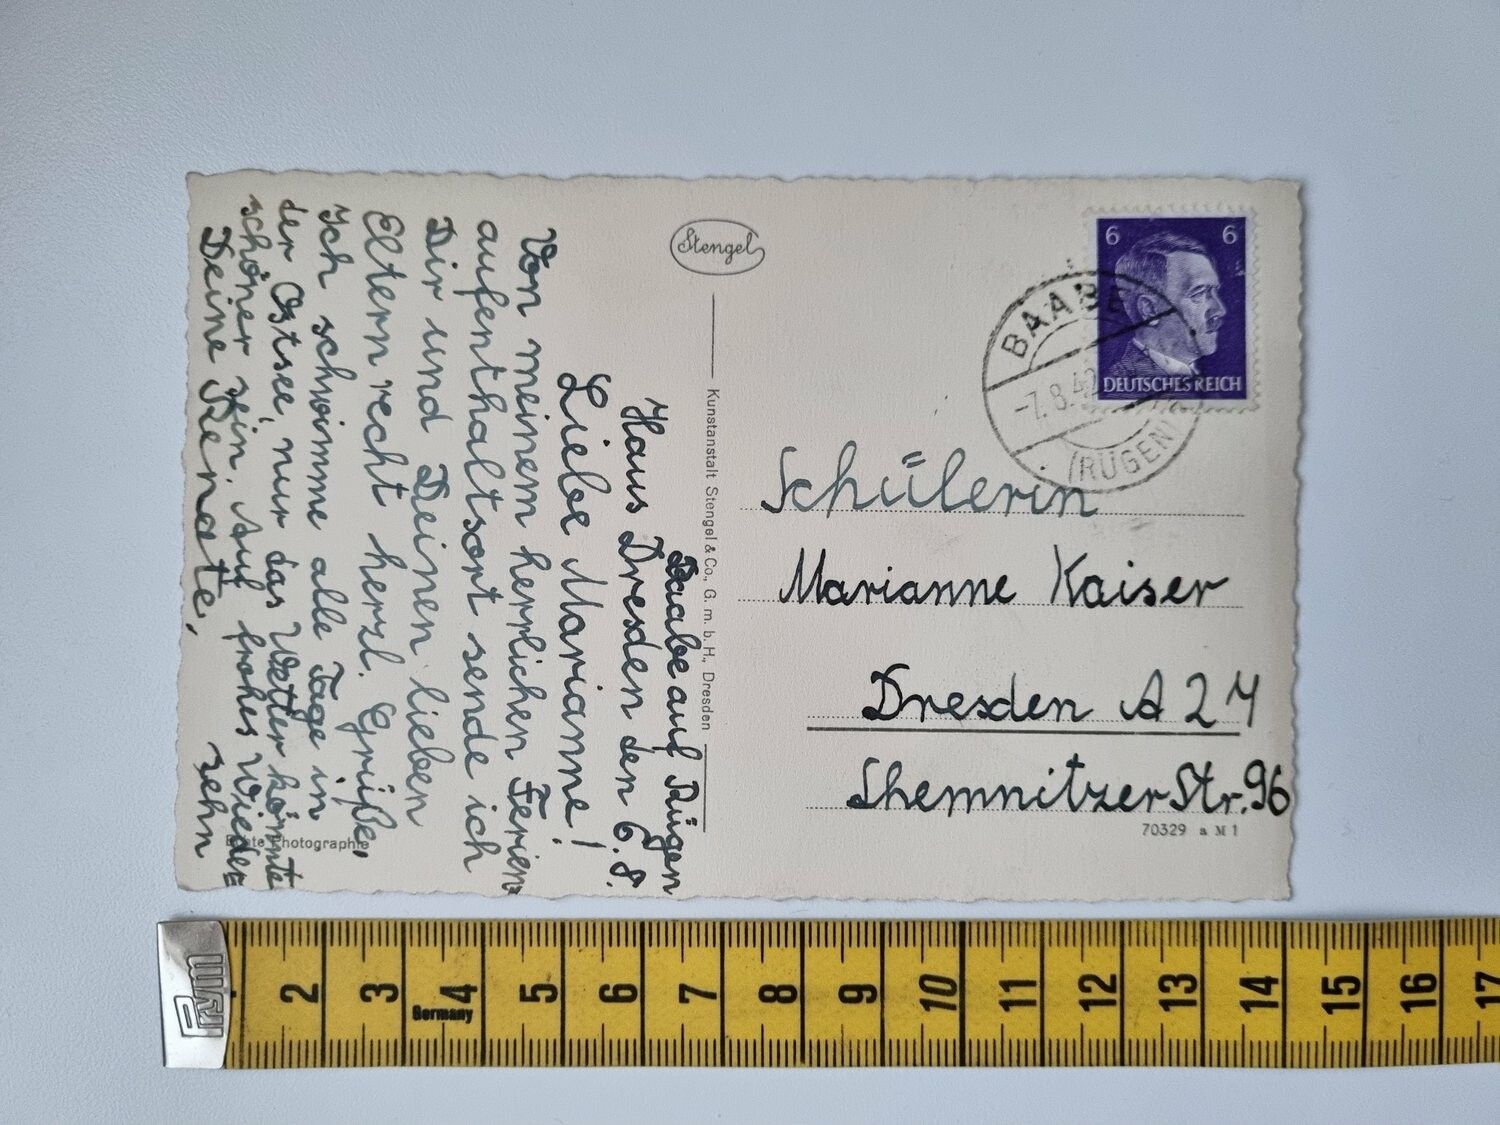 Baabe auf Rügen
Haus Dresden den 6.8.
Liebe Marianne!
Von meinem herrlichen Ferien-
aufenthaltsort sende ich
Dir und Deinen lieben
Eltern recht herzl. Grüße.
Ich schwimme alle Tage in
der Ostsee, nur das Wetter könnte
schöner sein. Auf frohes Wieder-
sehn
Deine Renate.
Echte Photographie
Stengel
Kunstanstalt Stengel & Co., G. m. b. H., Dresden
6 6
DEUTSCHES REICH
BAABE
-7.8.42
(RÜGEN)
Schülerin
Marianne Kaiser
Dresden A 24
Chemnitzer Str. 96
70329 a M 1
PRYM
2 3 4 5 6 7 8 9 10 11 12 13 14 15 16 17
Germany